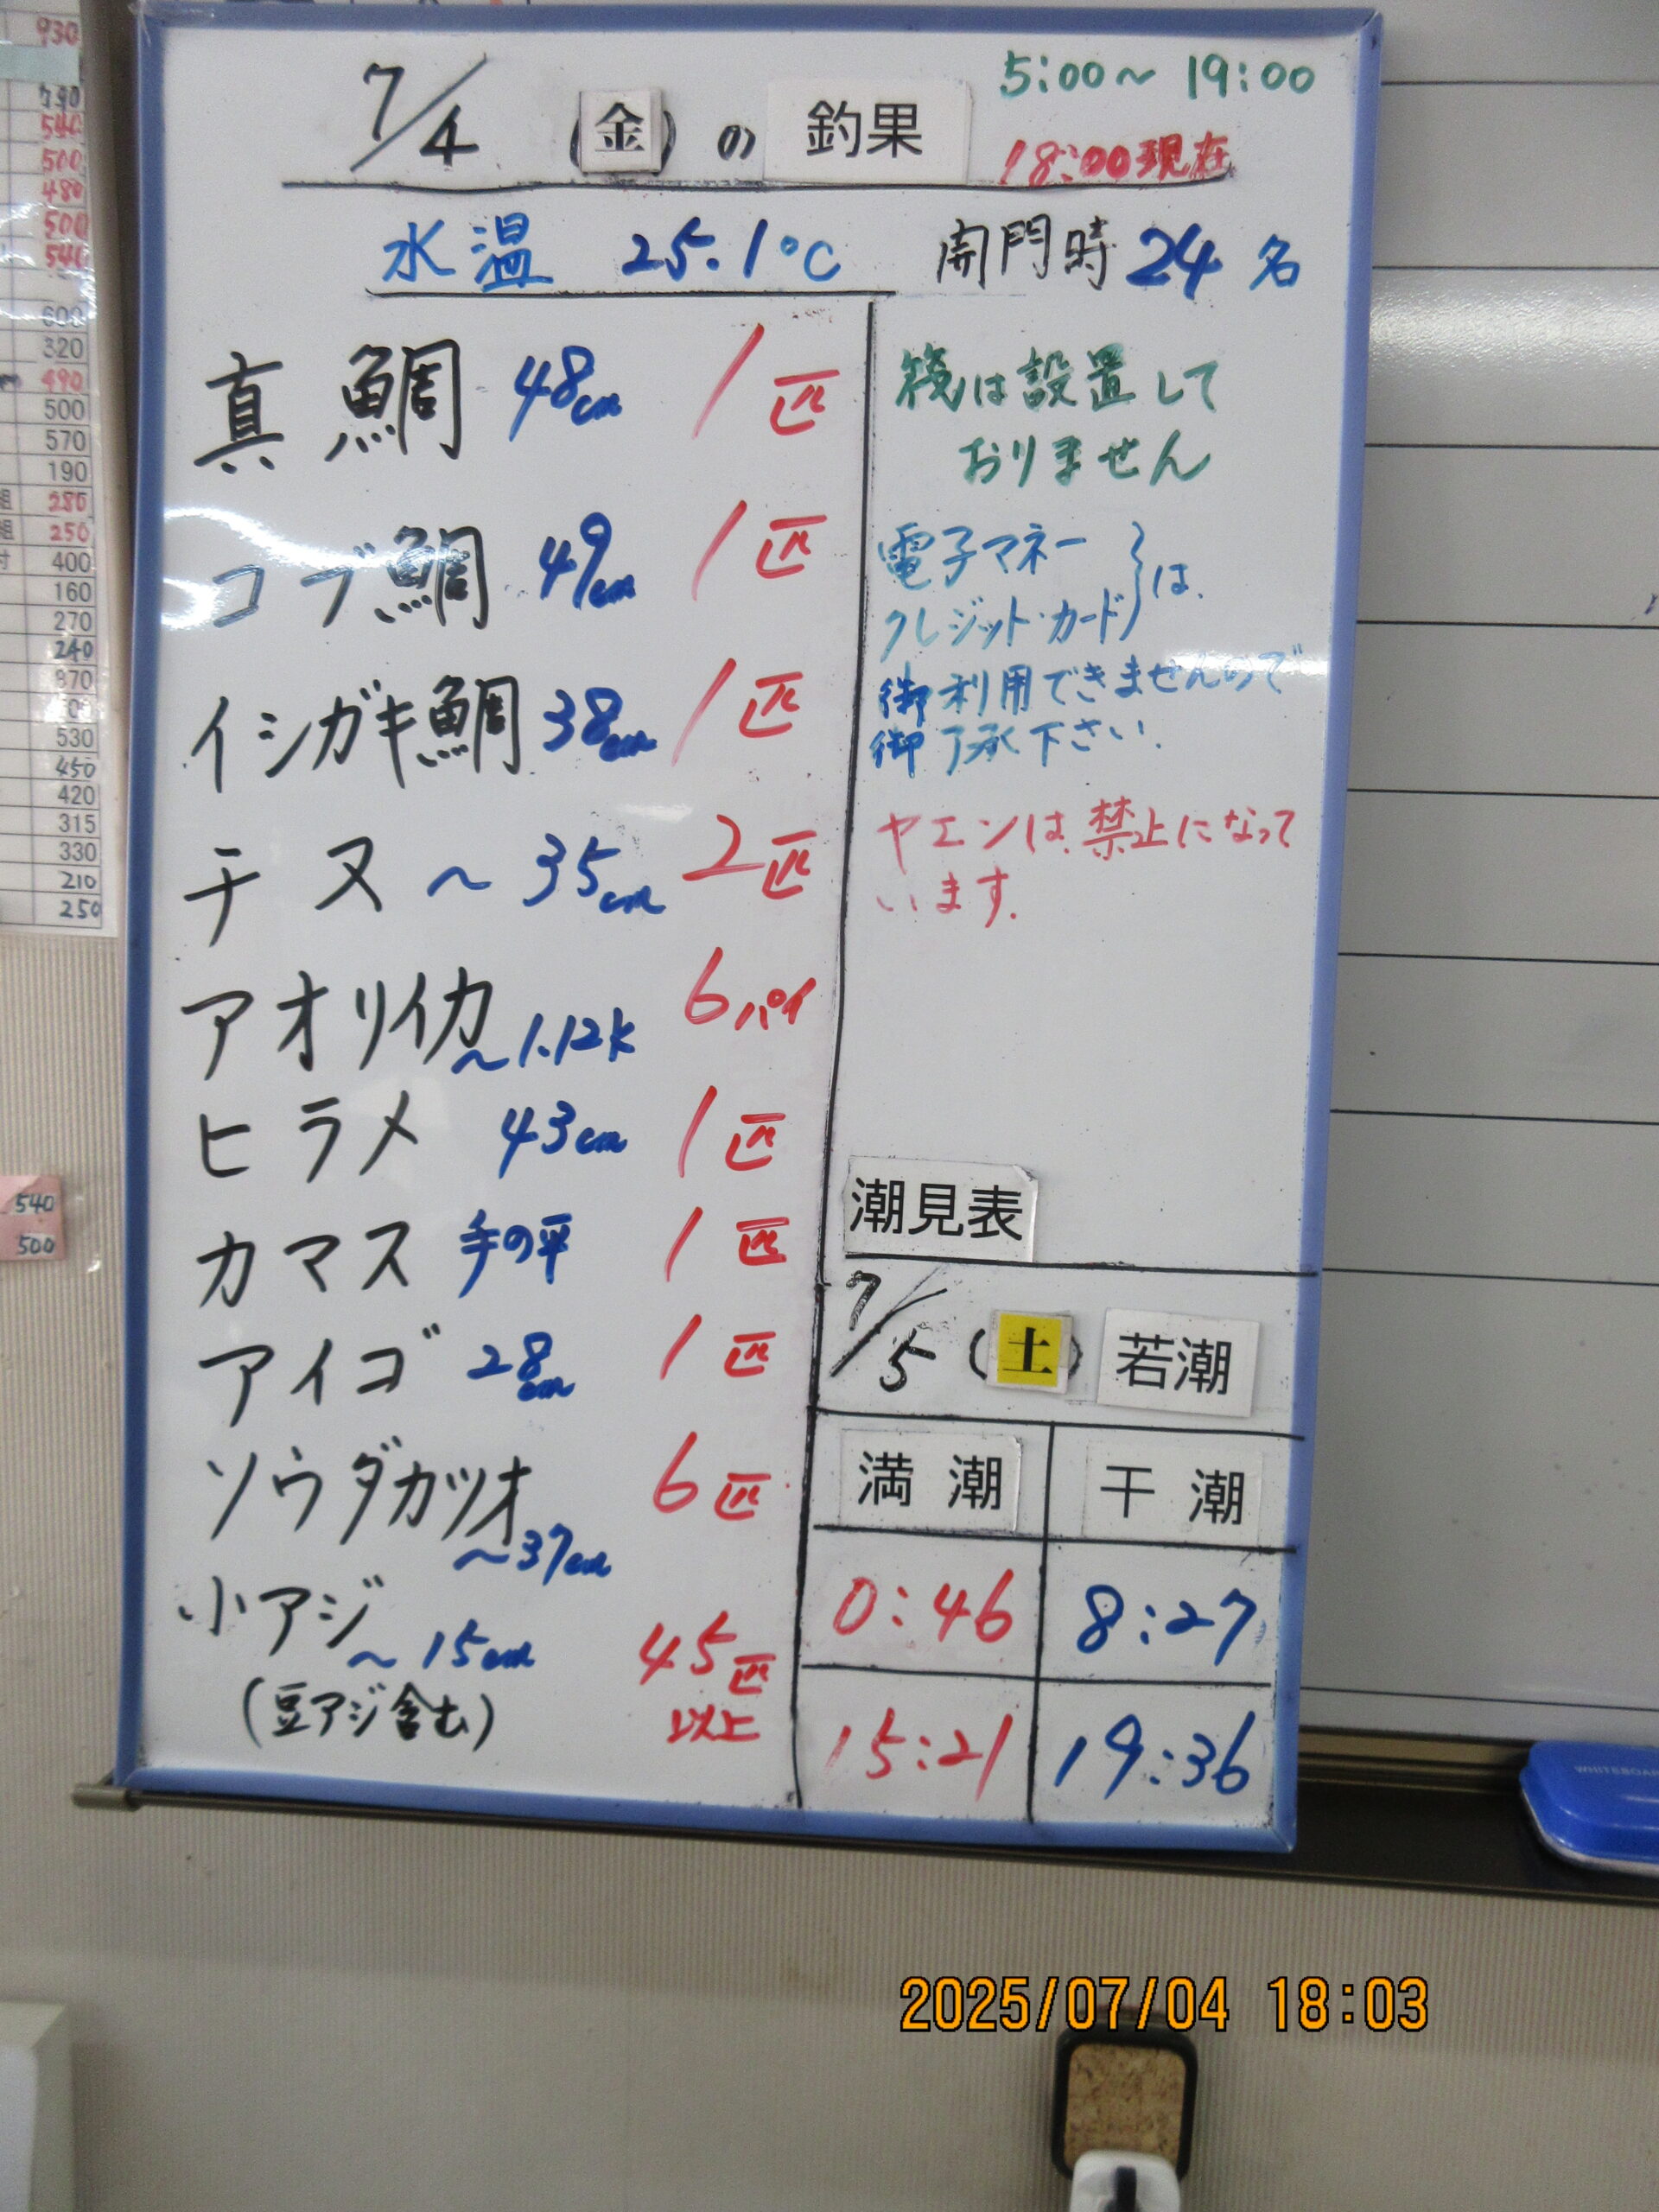 7/4 (金) の 釣果
5:00～19:00
18:00現在
水温 25.1℃
開門時 24名
真鯛 48cm 1匹
コブ鯛 49cm 1匹
イシガキ鯛 38cm 1匹
チヌ ～35cm 2匹
アオリイカ ～1.12k 6パイ
ヒラメ 43cm 1匹
カマス 手の平 1匹
アイゴ 28cm 1匹
ソウダカツオ ～37cm 6匹
小アジ ～15cm 45匹以上
(豆アジ含む)
筏は設置して
おりません
電子マネー
クレジット・カード}は
御利用できませんので
御了承下さい.
ヤエンは禁止になって
います.
潮見表
7/5 (土) 若潮
満潮 干潮
0:46 8:27
15:21 19:36
930
790
540
500
480
500
540
600
320
490
500
570
190
280
250
400
160
270
240
870
530
450
420
315
330
210
250
540
500
2025/07/04 18:03